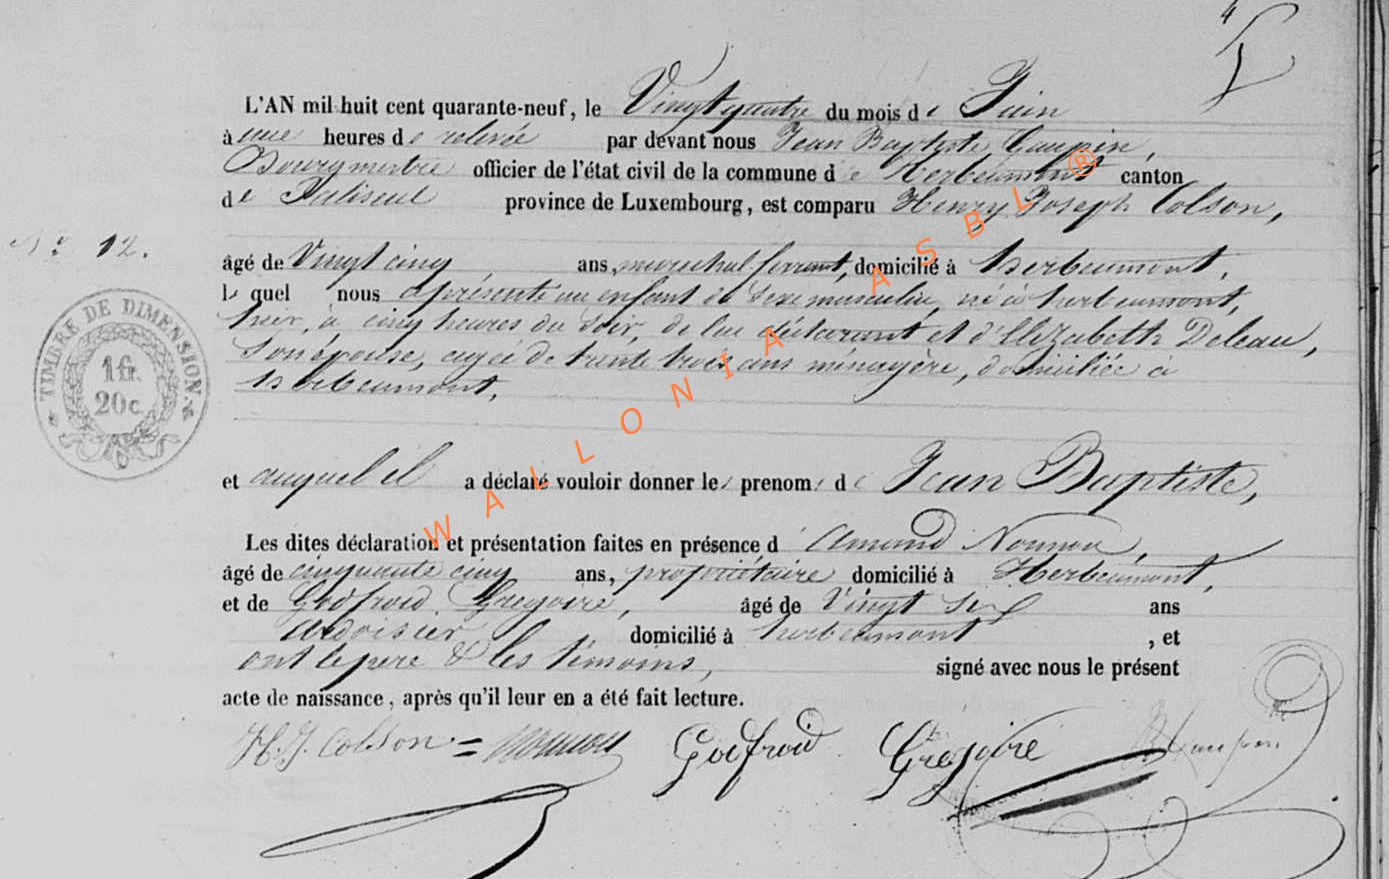 4
L'AN mil huit cent quarante-neuf, le Vingt quatre du mois de Juin
à une heures de relevée par devant nous Jean Baptiste Gaupin,
Bourgmestre officier de l'état civil de la commune de Herbeumont canton
de Paliseul province de Luxembourg, est comparu Henry Joseph Colson,
N° 12.
âgé de Vingt cinq ans, marechal ferrant, domicilié à herbeumont,
le quel nous a présenté un enfant de Sexe masculin, né à herbeumont,
hier, à cinq heures du Soir, de lui déclarant et d'Elizabeth Deleau,
Son épouse, agée de trente trois ans ménagère, domiciliée à
herbeumont,
TIMBRE DE DIMENSION
1 fr.
20 c.
et auquel il a déclaré vouloir donner les prenoms de Jean Baptiste,
Les dites déclaration et présentation faites en présence d' Amand Nonnon,
âgé de cinquante cinq ans, propriétaire domicilié à Herbeumont,
et de Godfroid Gregoire, âgé de Vingt Six ans
ardoisier domicilié à herbeumont, et
ont le père & les témoins, signé avec nous le présent
acte de naissance, après qu'il leur en a été fait lecture.
H. J. Colson = Nonnon Godfroid Gregoire
WALLONIA ASBL ®